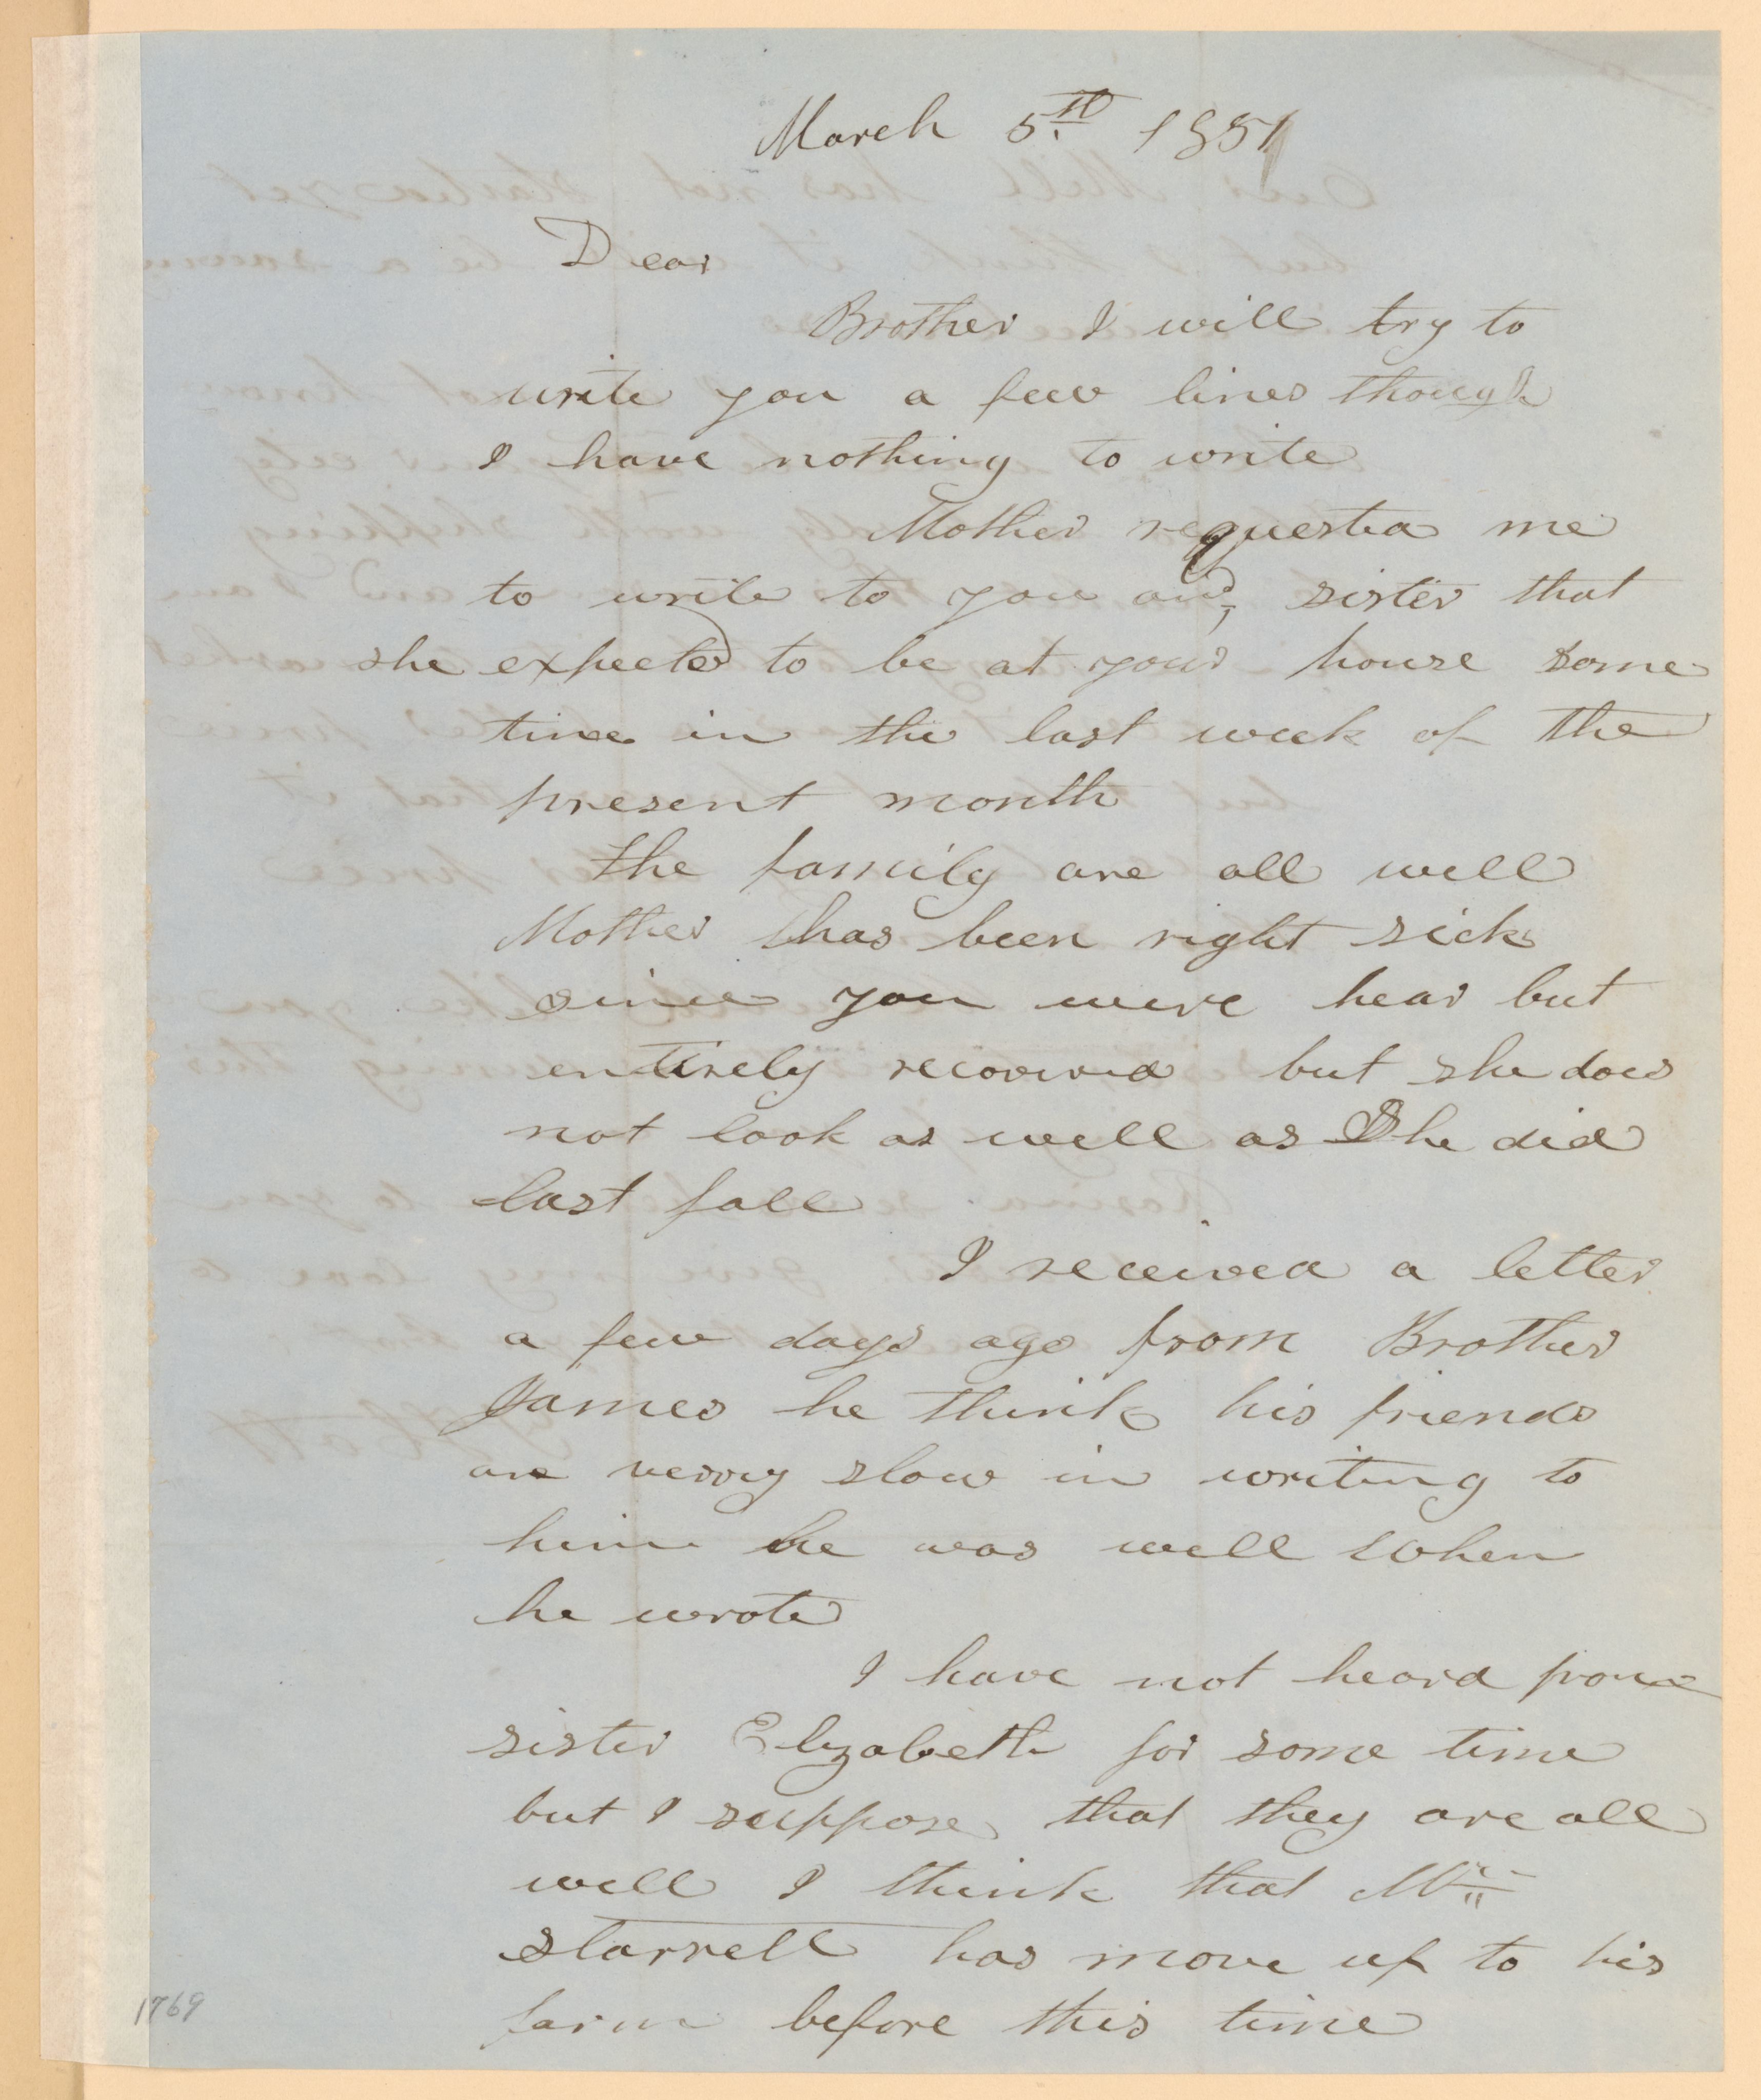 March 5th 1851
Dear
Brother I will try to
write you a few lines though
I have nothing to write
Mother requested me
to write to you and sister that
she expected to be at your house some
time in the last week of the
present month
the family are all well
Mother has been right sick
since you were hear but
entirely recovered but she does
not look as well as She did
last fall
I received a letter
a few days ago from Brother
James he think his friends
are verry slow in writing to
him he was well when
he wrote
I have not heard from
sister Elyzabeth for some time
but I suppose that they are all
well I think that Mr
Starrett has move up to his
farm before this time
1769